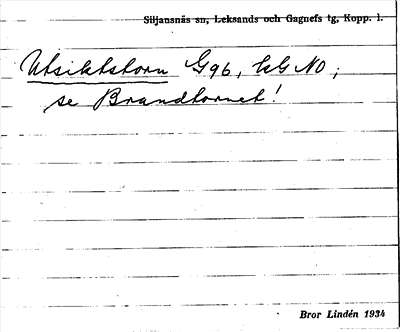 Siljansnäs sn, Leksands och Gagnefs tg, Kopp. l.
Utsiktstorn G96, kG NO;
se Brandtornet!
Bror Lindén 1934